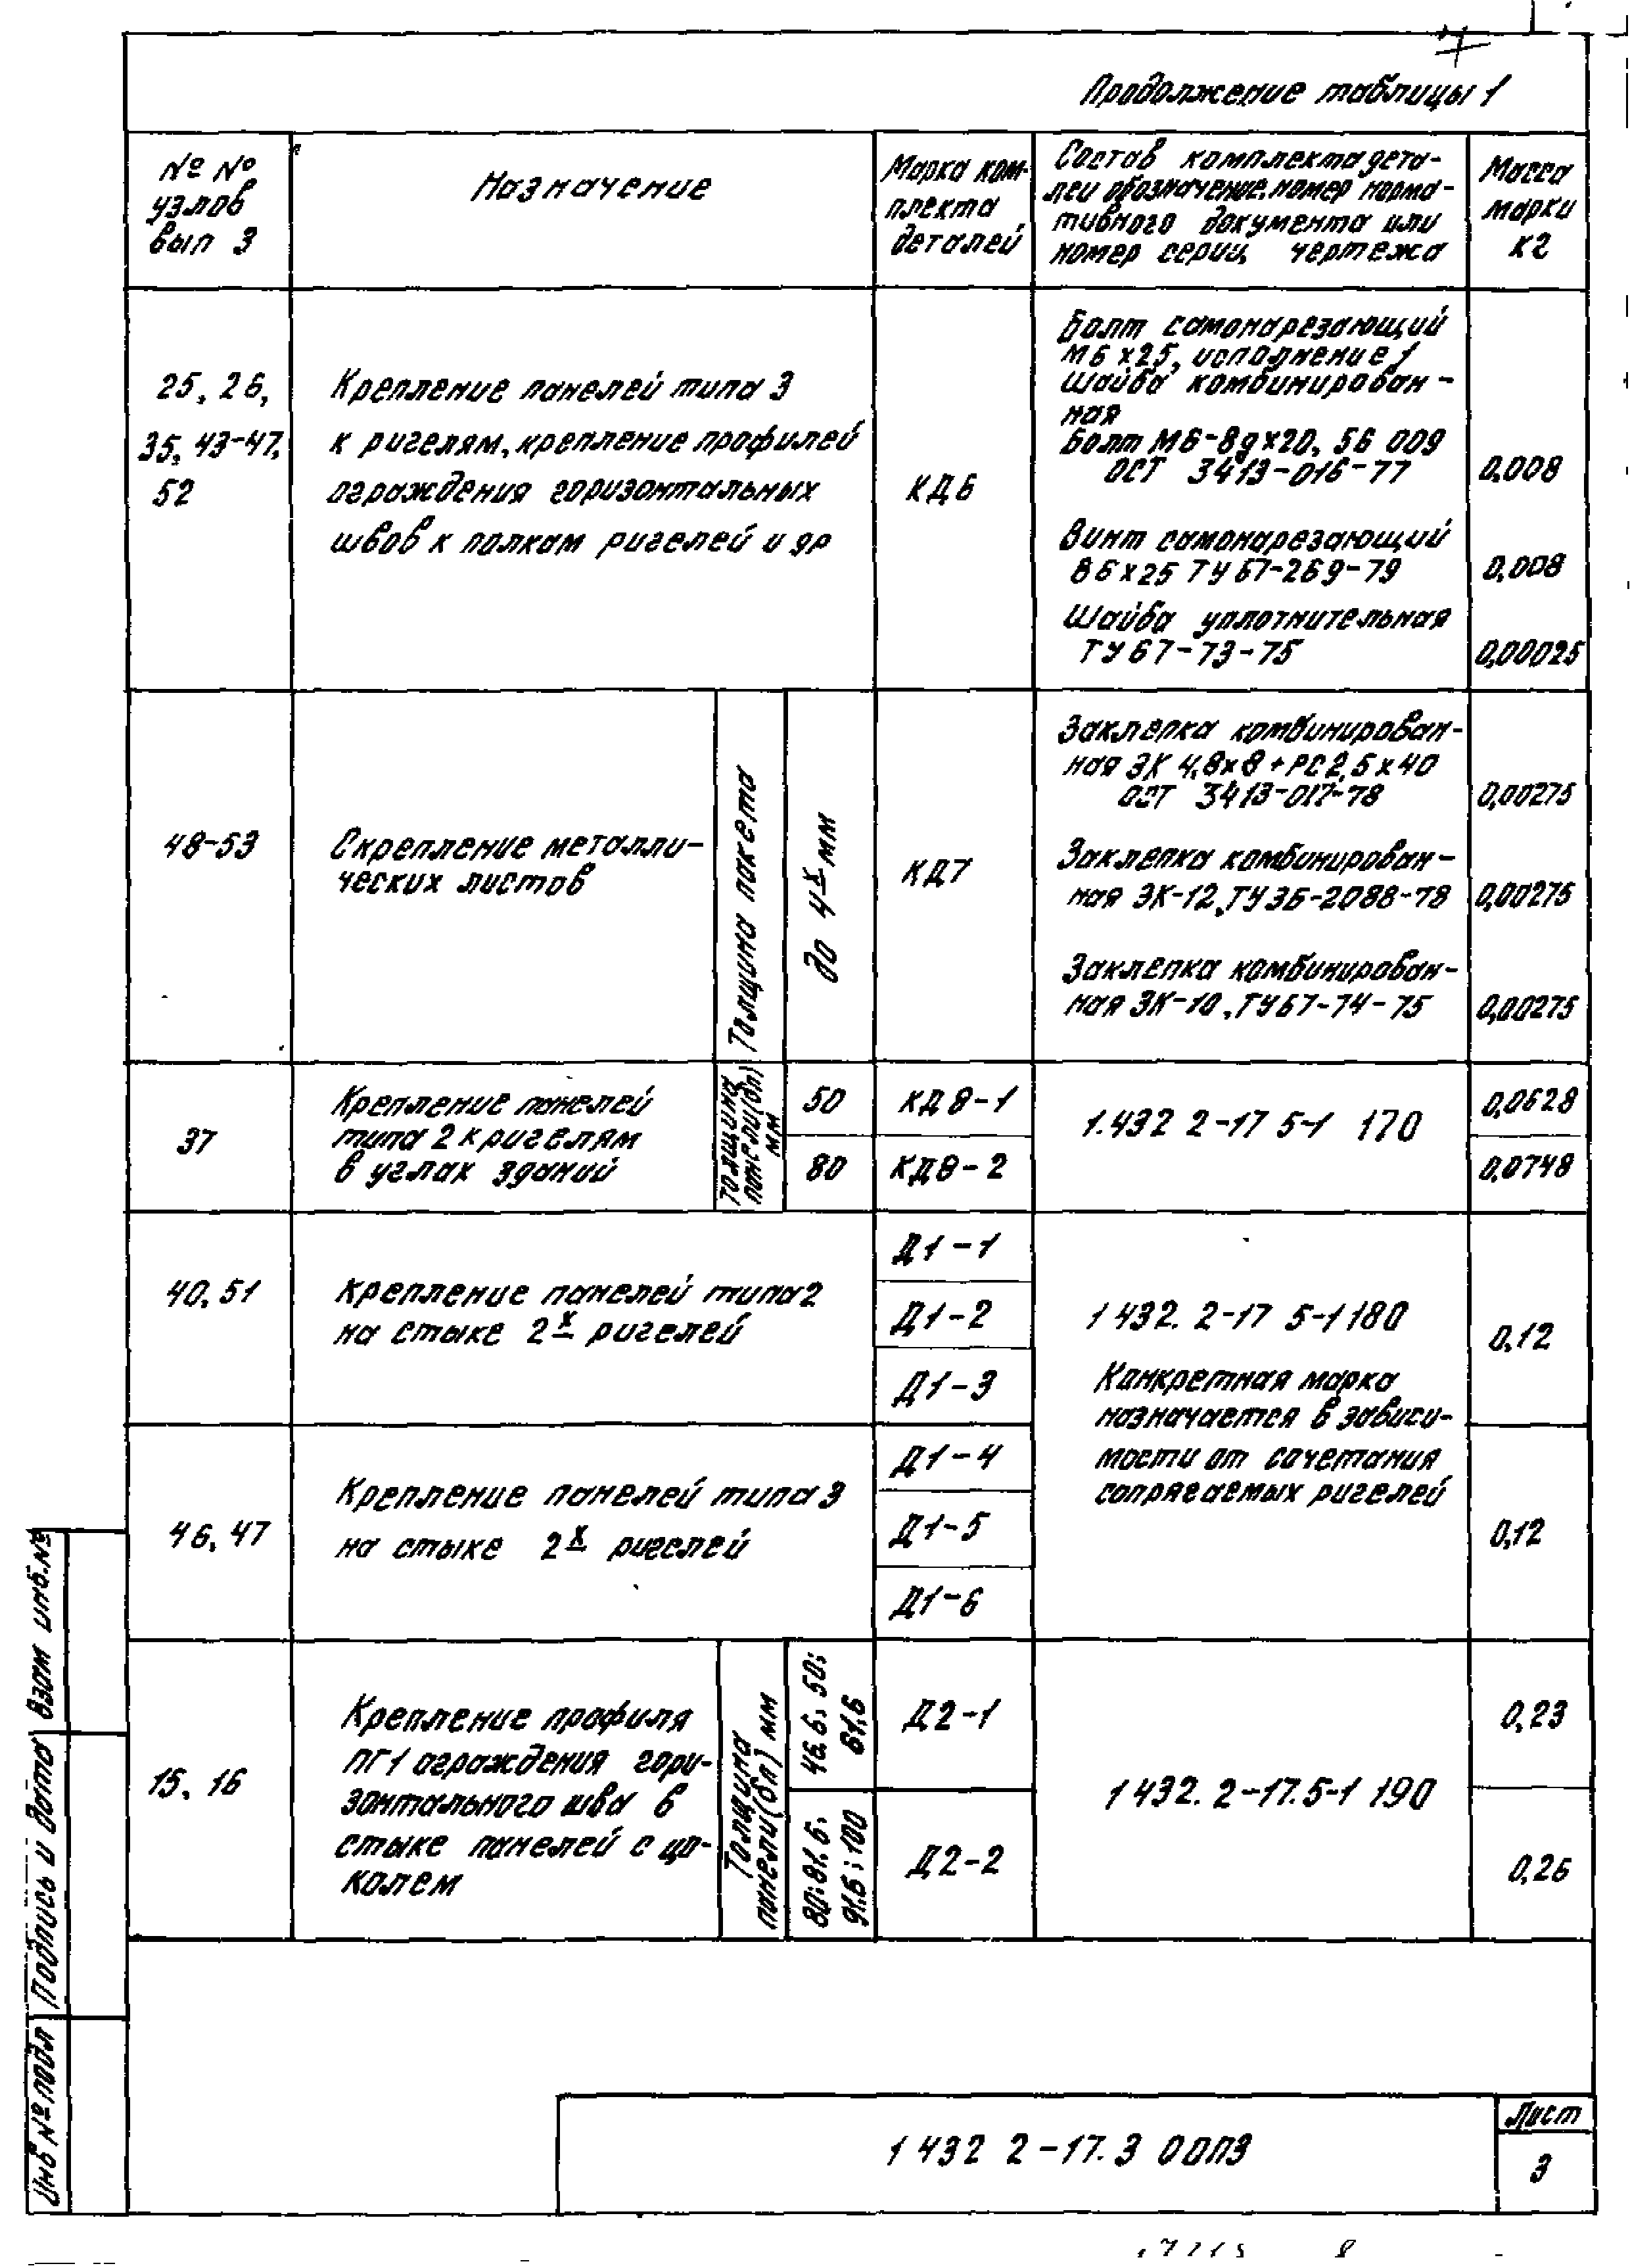 7
Продолжение таблицы 1
№ №
узлов
вып 3
Назначение
Марка ком-
плекта
деталей
Состав комплекта дета-
лей обозначение, номер норма-
тивного документа или
номер серии, чертежа
Масса
марки
кг
25, 26,
35, 43-47,
52
Крепление панелей типа 3
к ригелям, крепление профилей
ограждения горизонтальных
швов к полкам ригелей и др
КД6
Болт самонарезающий
М6х25, исполнение 1
Шайба комбинирован-
ная
Болт М6-8gх20, 56 009
ОСТ 3413-016-77
0,008
Винт самонарезающий
В6х25 ТУ67-269-79
0,008
Шайба уплотнительная
ТУ67-73-75
0,00025
48-53
Скрепление металли-
ческих листов
Толщина пакета
до 4х мм
КД7
Заклепка комбинирован-
ная ЗК 4,8х8+РС2,5х40
ОСТ 3413-017-78
0,00275
Заклепка комбинирован-
ная ЗК-12, ТУ36-2088-78
0,00275
Заклепка комбинирован-
ная ЗК-10, ТУ67-74-75
0,00275
37
Крепление панелей
типа 2 к ригелям
в углах зданий
Толщина
панели (bп)
мм
50
КД8-1
1.432 2-17 5-1 170
0,0628
80
КД8-2
0,0748
40, 51
Крепление панелей типа 2
на стыке 2х ригелей
Д1-1
Д1-2
Д1-3
1 432. 2-17 5-1 180
Конкретная марка
назначается в зависи-
мости от сочетания
сопрягаемых ригелей
0,12
46, 47
Крепление панелей типа 3
на стыке 2х ригелей
Д1-4
Д1-5
Д1-6
0,12
15, 16
Крепление профиля
ПГ1 ограждения гори-
зонтального шва в
стыке панелей с цо-
колем
Толщина
панели (bп) мм
46,6, 50;
61,6
Д2-1
1 432. 2-17.5-1 190
0,23
80; 81,6,
91,6; 100
Д2-2
0,26
Взам инв.№
Подпись и дата
Инв № подл
1 432 2-17. 3 00ПЗ
Лист
3